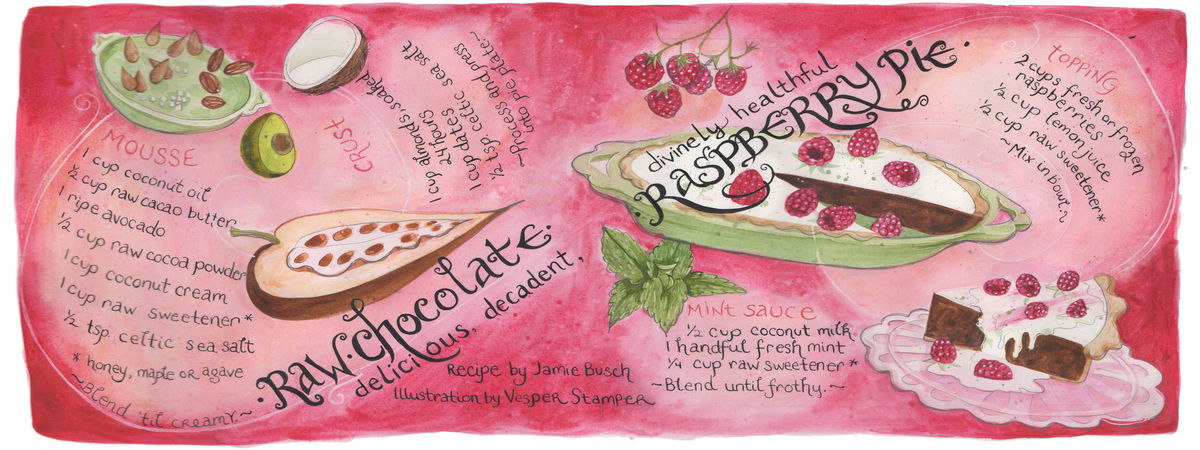 MOUSSE
1 cup coconut oil
½ cup raw cacao butter
1 ripe avocado
½ cup raw cocoa powder
1 cup coconut cream
1 cup raw sweetener*
½ tsp. celtic sea salt
* honey, maple or agave
~Blend 'til creamy.~
CRUST
1 cup almonds soaked
24 hours
1 cup dates
½ tsp. celtic sea salt
~Process and press
into pie plate~
·RAW·chocolate·
delicious, decadent,
Recipe by Jamie Busch
Illustration by Vesper Stamper
divinely healthful
·RASPBERRY PIE·
TOPPING
2 cups fresh or frozen
raspberries
½ cup lemon juice
½ cup raw sweetener*
~Mix in bowl.~
MINT SAUCE
½ cup coconut milk
1 handful fresh mint
¼ cup raw sweetener*
~Blend until frothy.~